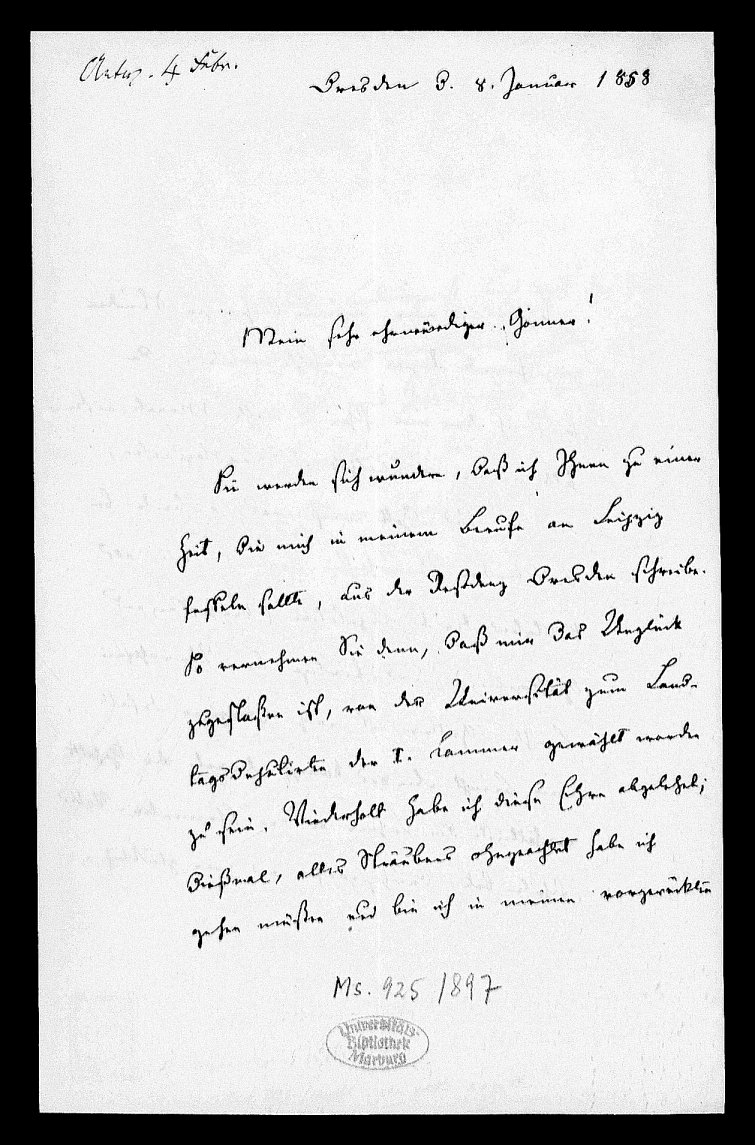 Antw. 4 Febr.
Dresden d. 8. Januar 1858
Mein sehr ehrwürdiger Gönner!
Sie werden sich wundern, daß ich Ihnen zu einer
Zeit, die mich in meinem Berufe an Leipzig
fesseln sollte, aus der Residenz Dresden schreibe.
So vernehmen Sie denn, daß mir das Unglück
zugestoßen ist, von der Universität zum Land-
tagsdeputirten der I. Kammer gewählt worden
zu sein. Wiederholt habe ich diese Ehre abgelehnt;
dießmal, alles Sträubens ohngeachtet habe ich
gehen müßen und bin ich in meinen vorgerückten
Ms. 925/897
Universitäts-
Bibliothek
Marburg